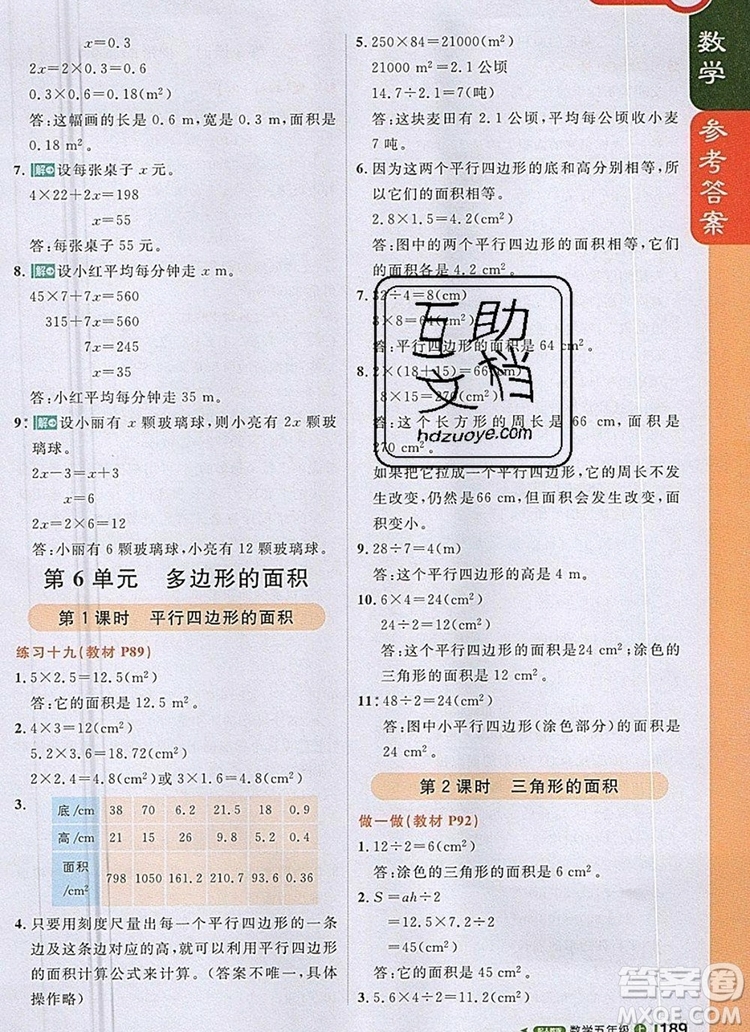 x=0.3
2x=2×0.3=0.6
0.3×0.6=0.18(m²)
答:这幅画的长是 0.6 m,宽是 0.3 m,面积是
0.18 m²。
7. 解 设每张桌子 x 元。
4×22+2x=198
x=55
答:每张桌子 55 元。
8. 解 设小红平均每分钟走 x m。
45×7+7x=560
315+7x=560
7x=245
x=35
答:小红平均每分钟走 35 m。
9. 解 设小丽有 x 颗玻璃球,则小亮有 2x 颗玻
璃球。
2x-3=x+3
x=6
2x=12
答:小丽有 6 颗玻璃球,小亮有 12 颗玻璃球。
第 6 单元 多边形的面积
第 1 课时 平行四边形的面积
练习十九(教材 P89)
1. 5×2.5=12.5(m²)
答:它的面积是 12.5 m²。
2. 4×3=12(cm²)
5.2×3.6=18.72(cm²)
2×2.4=4.8(cm²)或 3×1.6=4.8(cm²)
3.
底/cm 38 70 6.2 21.5 18 0.3
高/cm 21 15 26 9.8 5.2 1.2
面积
/cm² 798 1050 161.2 210.7 93.6 0.36
4. 只要用刻度尺量出每一个平行四边形的一条
边以及这条边对应的高,就可以利用平行四边形
的面积计算公式来计算。(答案不唯一,具体
操作略)
5. 250×84=21000(m²)
21000 m²=2.1 公顷
14.7÷2.1=7(吨)
答:这块麦田有 2.1 公顷,平均每公顷收小麦
7 吨。
6. 因为这两个平行四边形的底和高分别相等,所
以它们的面积相等。
2.8×1.5=4.2(cm²)
答:图中的两个平行四边形的面积相等,它们
的面积各是 4.2 cm²。
7. 32÷4=8(cm)
8×8=64(cm²)
答:平行四边形的面积
8. 2×(18+15)=66(cm)
18×15=270(cm²)
答:这个长方形的周长是 66 cm,面积是
270 cm²。
如果把它拉成一个平行四边形,它的周长不发
生改变,仍然是 66 cm,但面积会发生改变,面积
变小。
9. 28÷7=4(m)
10. 6×4=24(cm²)
24÷2=12(cm²)
答:平行四边形的面积是 24 cm²,涂色的
三角形的面积是 12 cm²。
11. 48÷2=24(cm²)
答:图中小平行四边形(涂色部分)的面积是
24 cm²。
第 2 课时 三角形的面积
做一做(教材 P92)
1. 12÷2=6(cm²)
答:涂色的三角形的面积是 6 cm²。
2. S=ah÷2
=12.5×7.2÷2
=45(cm²)
答:它的面积是 45 cm²。
3. 5.6×4÷2=11.2(cm²)
数学
参考答案
互助
文档
hdzuoye.com
数学五年级 上 189